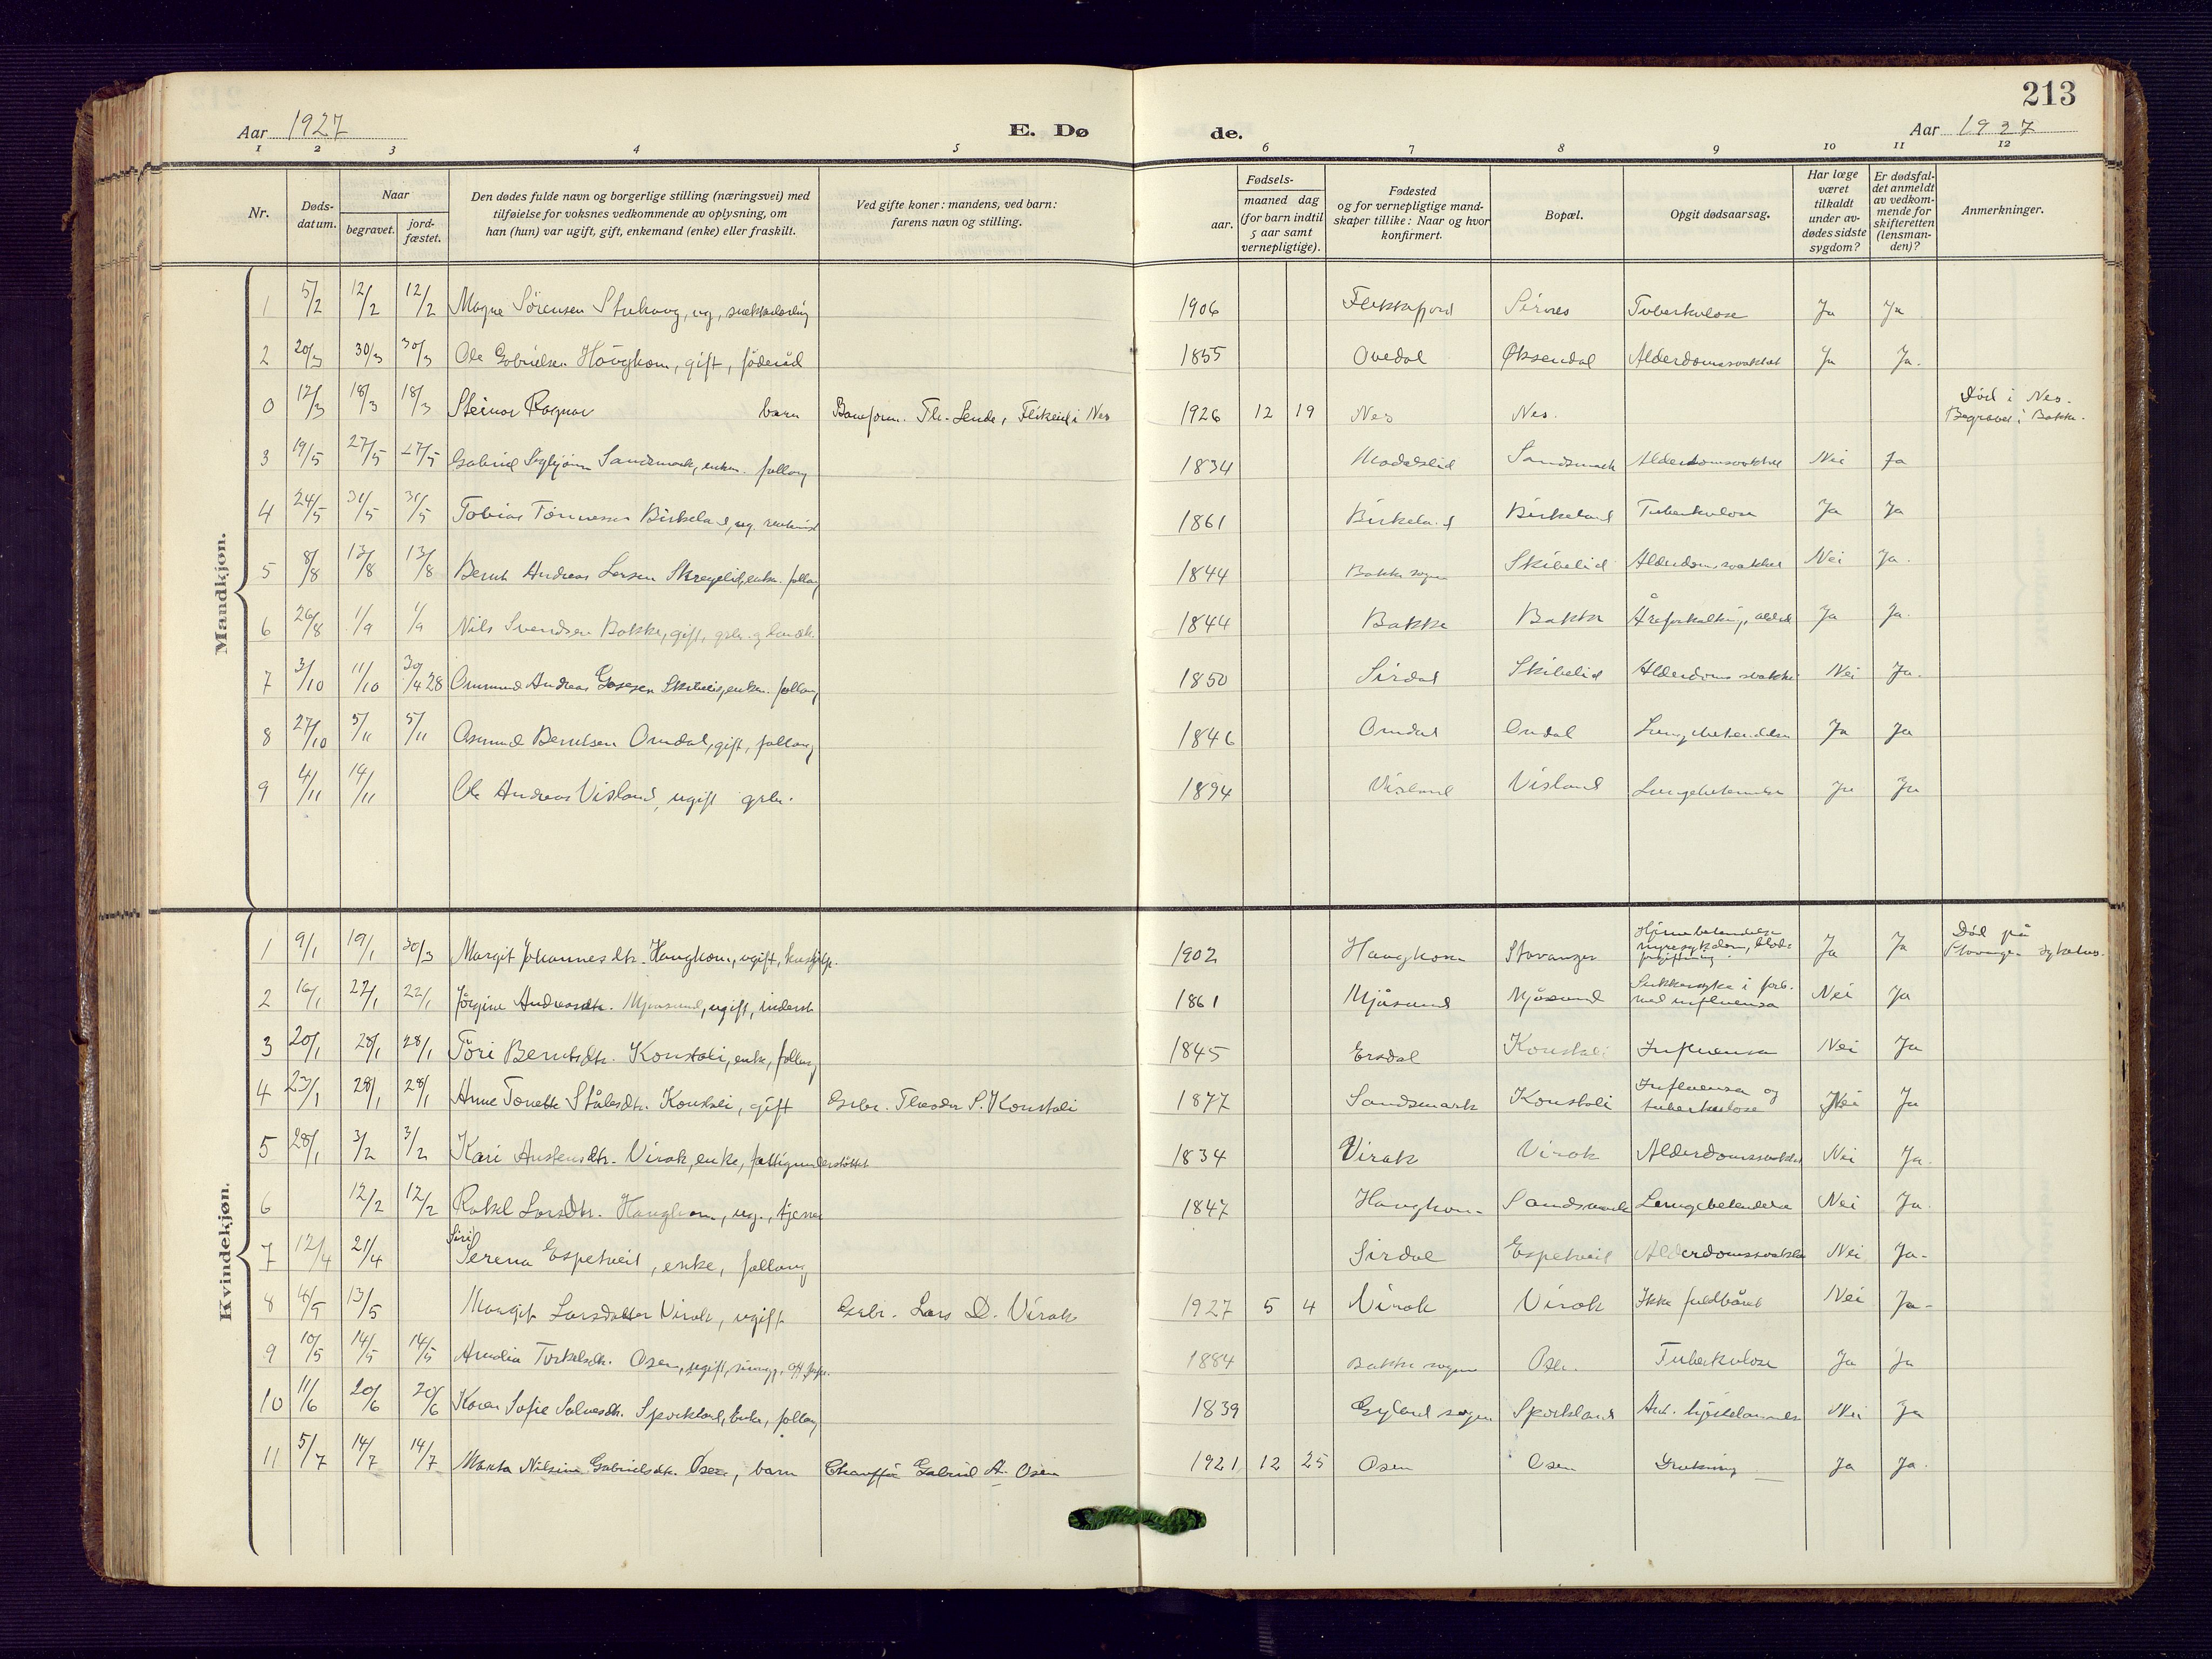 213
Aar 1927
E. Dø
de.
Aar 1927
1 2 3 4 5 6 7 8 9 10 11 12
Nr.
Døds-
datum.
Naar
begravet.
jord-
fæstet.
Den dødes fulde navn og borgerlige stilling (næringsvei) med
tilføielse for voksnes vedkommende av oplysning, om
han (hun) var ugift, gift, enkemand (enke) eller fraskilt.
Ved gifte koner: mandens, ved barn:
farens navn og stilling.
Fødsels-
aar.
maaned dag
(for barn indtil
5 aar samt
vernepligtige).
Fødested
og for vernepligtige mand-
skaper tillike: Naar og hvor
konfirmert.
Bopæl.
Opgit dødsaarsag.
Har læge
været
tilkaldt
under av-
dødes sidste
sygdom?
Er dødsfal-
det anmeldt
av vedkom-
mende for
skifteretten
(lensman-
den)?
Anmerkninger.
Mandkjøn.
1 5/2 12/2 12/2 Magne Sörensen ug, 1906 Flekkefjord Sirnes Tuberkulose Ja Ja
2 20/3 30/3 30/3 Ole Gabrielsen Haughom, gift, föderåd 1855 Ovedal Øksendal Alderdomssvakhet Ja Ja.
0 12/3 18/3 18/3 Steinar Ragnar barn Flikeid i Nes 1926 12 19 Nes Nes. Död i Nes.
Begravet i Bakke.
3 19/5 27/5 27/5 Gabriel Sandsmark, enkem. follaug 1834 Sandsmark Alderdomssvakhet Nei Ja
4 24/5 31/5 31/5 Tobias Tönnessen Birkeland, ug. 1861 Birkeland Birkeland Tuberkulose Ja Ja
5 8/8 13/8 13/8 Bernt Andreas Larsen enkem. follaug 1844 Bakke sogn Skibelid Alderdomssvakhet Nei Ja.
6 26/8 1/9 1/9 Nils Svendsen Bakke, gift, 1844 Bakke Bakke Åreforkalkning, Ja Ja.
7 3/10 11/10 30/4 28 Ommund Andreas Skibelid, enkem. follaug 1850 Sirdal Skibelid Alderdomssvakhet Nei Ja.
8 27/10 5/11 5/11 Asmund Berntsen Omdal, gift, follaug 1846 Omdal Omdal Lungebetendelse Ja Ja
9 4/11 14/11 Ole Andreas Visland, ugift grbr. 1894 Visland Visland Lungebetendelse Ja Ja
Kvindekjøn.
1 9/1 19/1 30/3 Margit Johannesdtr. Haughom, ugift, hushjelp. 1902 Haughom Stavanger Hjernebetendelse
nyresykdom, blod-
forgiftning. Ja Ja Död på
Stavanger sykehus.
2 16/1 22/1 22/1 Jörgine Andreasdtr. Mjåsund, ugift, inderst 1861 Mjåsund Mjåsund Sukkersyke i forb.
med influensa Nei Ja
3 20/1 28/1 28/1 Töri Berntsdtr. Konstali, enke, follaug 1845 Ersdal Konstali Influensa Nei Ja
4 23/1 28/1 28/1 Anne Tonette Ståлesdtr. Konstali, gift Grbr. Theodor S. Konstali 1877 Sandsmark Konstali Influensa og
tuberkulose Nei Ja
5 28/1 3/2 3/2 Kari Austensdtr. Virak, enke, fattigunderstöttet 1834 Virak Virak Alderdomssvakhet Nei Ja.
6 12/2 12/2 Rakel Larsdtr. Haughom, ug., tjener 1847 Haughom Sandsmark Lungebetendelse Nei Ja.
7 12/4 21/4 Siri
Serena Espetveit, enke, follaug Sirdal Espetveit Alderdomssvakhet Nei Ja.
8 4/5 13/5 Margit Larsdatter Virak, ugift Grbr. Lars D. Virak 1927 5 4 Virak Virak Ikke fuldbåret Nei Ja.
9 10/5 14/5 14/5 Amalia Torkelsdtr. Osen, ugift, 1884 Bakke sogn Osen. Tuberkulose Ja Ja
10 11/6 20/6 20/6 Karen Sofie Salvesdtr. Sporkland, Enke, follaug 1839 Gyland sogn Sporkland Ant. hjertelammelse Nei Ja
11 5/7 14/7 14/7 Marta Nilsine Gabrielsdtr. Osen, barn Chauffør Gabriel A. Osen 1921 12 25 Osen Osen Drukning Ja Ja.